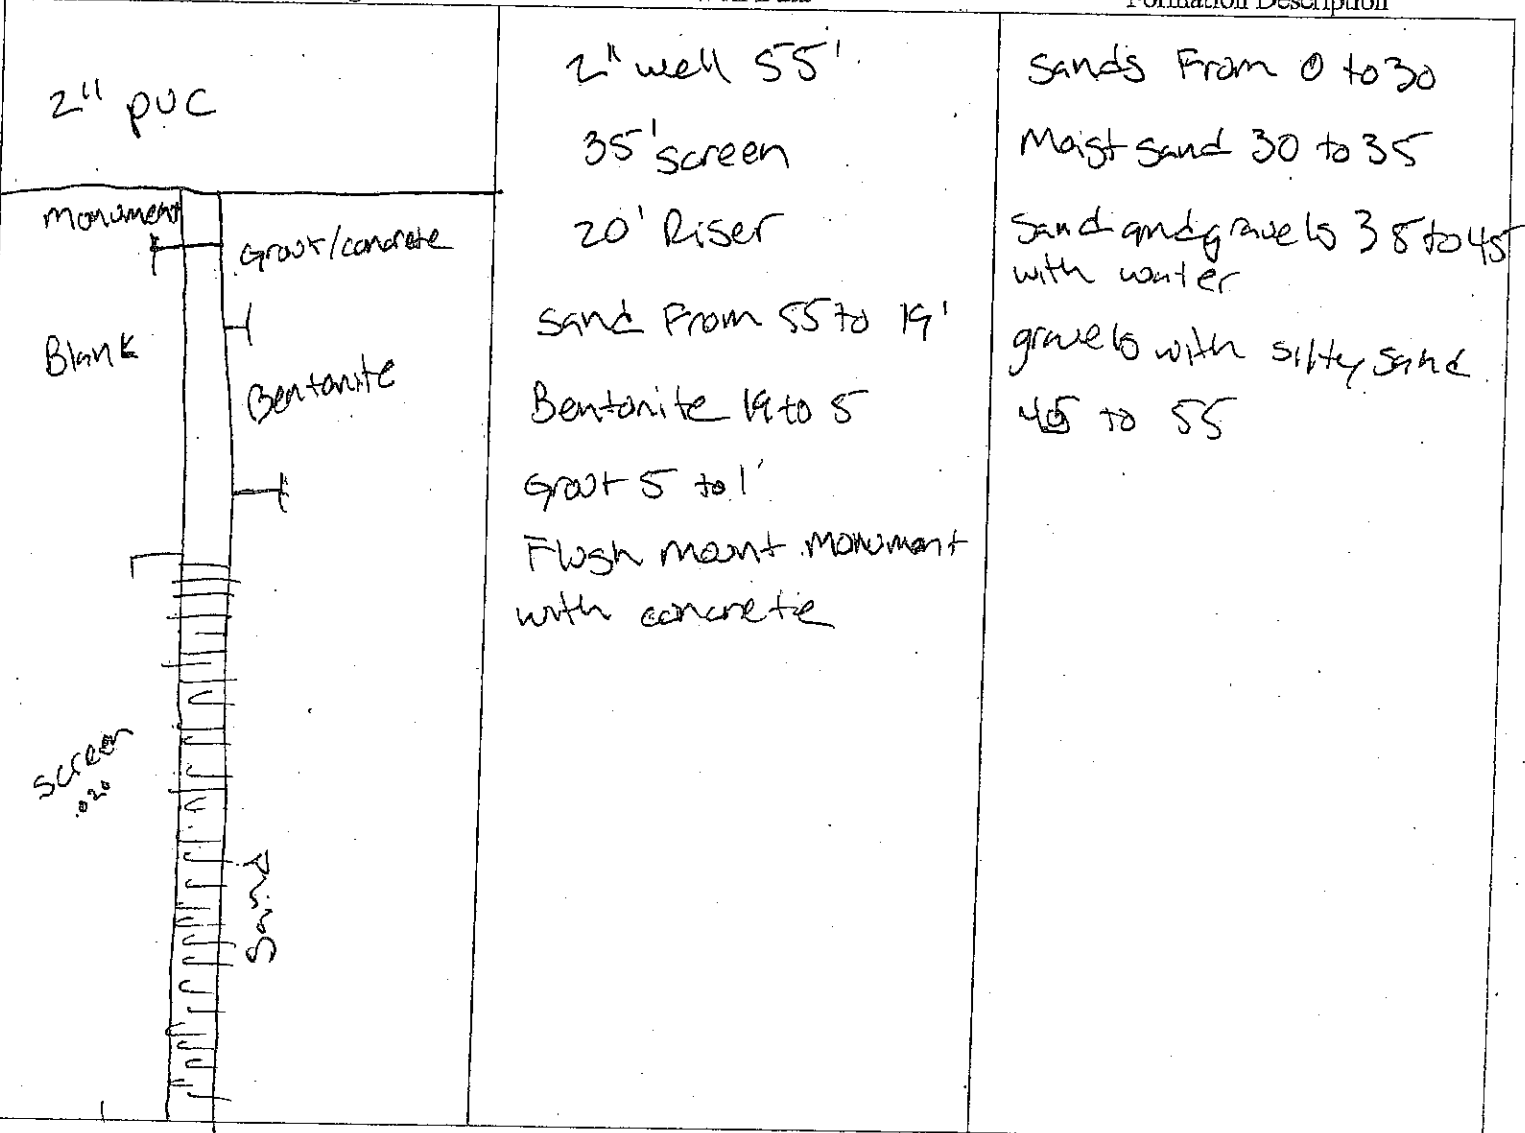 Formation Description
2" PVC
Monument
Grout/concrete
Blank
Bentonite
screen
.020
Sand
2" well 55'
35' screen
20' Riser
Sand From 55 to 19'
Bentonite 19 to 5
Grout 5 to 1'
Flush mount Monument
with concrete
Sands From 0 to 30
Moist sand 30 to 35
Sand and gravels 35 to 45
with water
gravels with silty sand
45 to 55